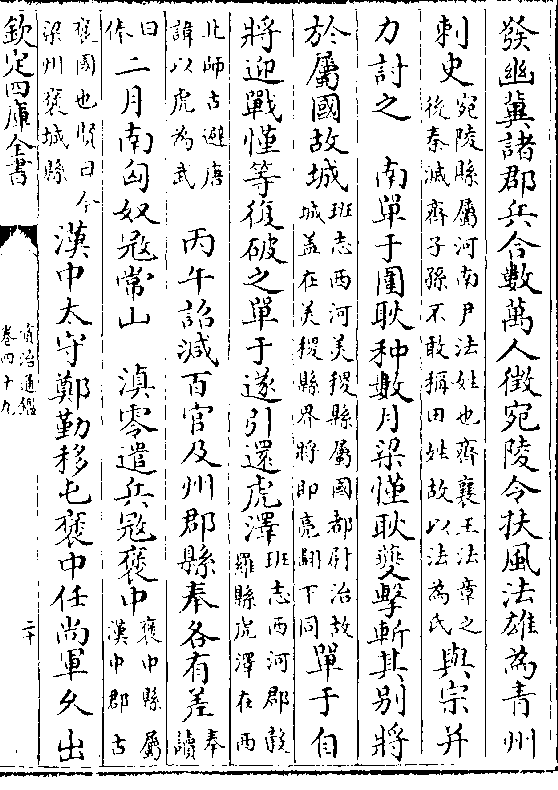 發幽冀諸郡兵合數萬人徵宛陵令扶風法雄為青州
刺史
宛陵縣屬河南尹法姓也齊襄王法章之
後秦滅齊子孫不敢稱田姓故以法為氏
與宗并
力討之　南單于圍耿种數月梁慬耿夔擊斬其別將
於屬國故城
班志西河美稷縣屬國都尉治故
城盖在美稷縣界將即亮翻下同
單于自
將迎戰慬等復破之單于遂引還虎澤
班志西河郡穀
羅縣虎澤在西
北師古避唐
諱以虎為武
丙午詔減百官及州郡縣奉各有差
奉
讀
曰
俸
二月南匈奴寇常山　滇零遣兵寇褒中
褒中縣屬
漢中郡古
褒國也賢曰今
梁州褒城縣
漢中太守鄭勤移屯褒中任尚軍久出
欽定四庫全書
資治通鑑
卷四十九
二十